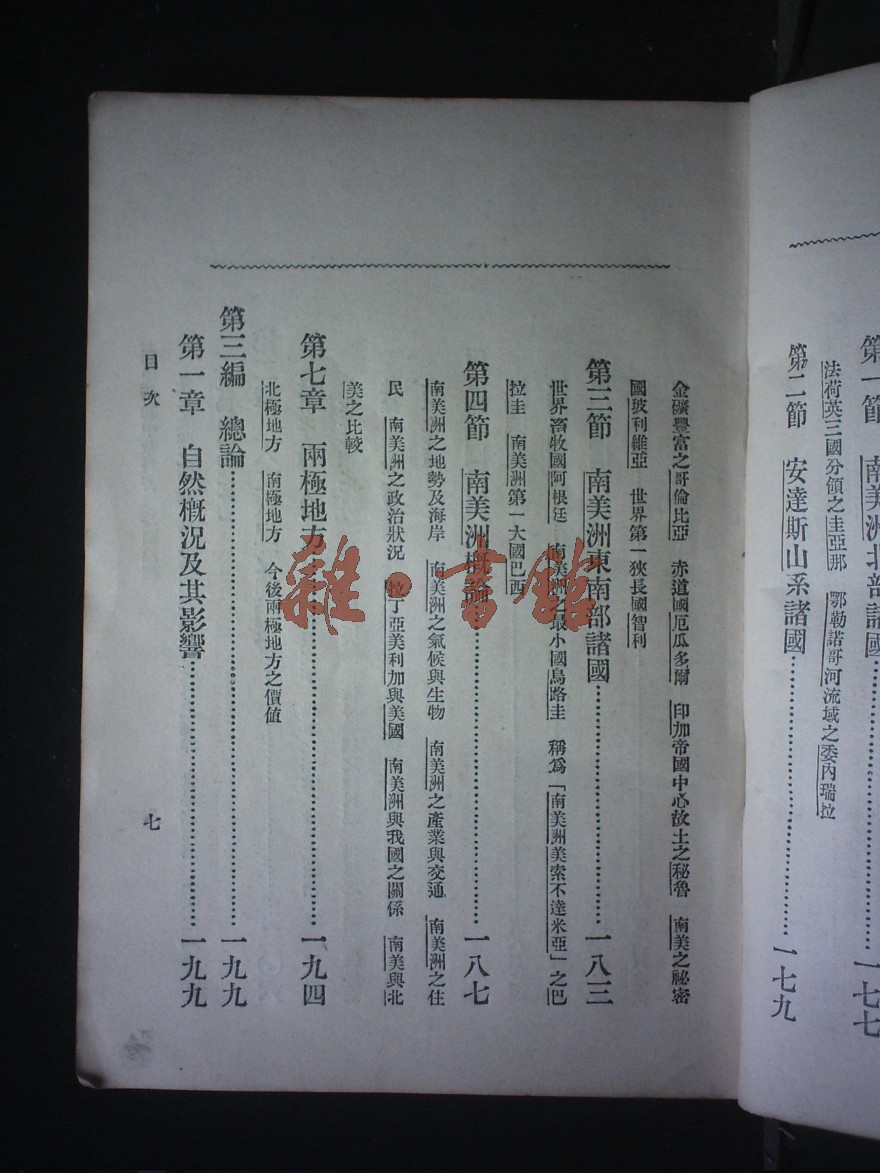 第一節 南美洲北部諸國……一七七
法荷英三國分領之圭亞那 鄂勒諾哥河流域之委內瑞拉
第二節 安達斯山系諸國……一七九
金礦豐富之哥倫比亞 赤道國厄瓜多爾 印加帝國中心故土之秘魯 南美之祕密
國玻利維亞 世界第一狹長國智利
第三節 南美洲東南部諸國……一八三
世界畜牧國阿根廷 南美洲之最小國烏路圭 稱爲「南美洲美索不達米亞」之巴
拉圭 南美洲第一大國巴西
第四節 南美洲概論……一八七
南美洲之地勢及海岸 南美洲之氣候與生物 南美洲之產業與交通 南美洲之住
民 南美洲之政治狀況 拉丁亞美利加與美國 南美洲與我國之關係 南美與北
美之比較
第七章 兩極地方……一九四
北極地方 南極地方 今後兩極地方之價值
第三編 總論……一九九
第一章 自然概況及其影響……一九九
目次
七
雜·書館